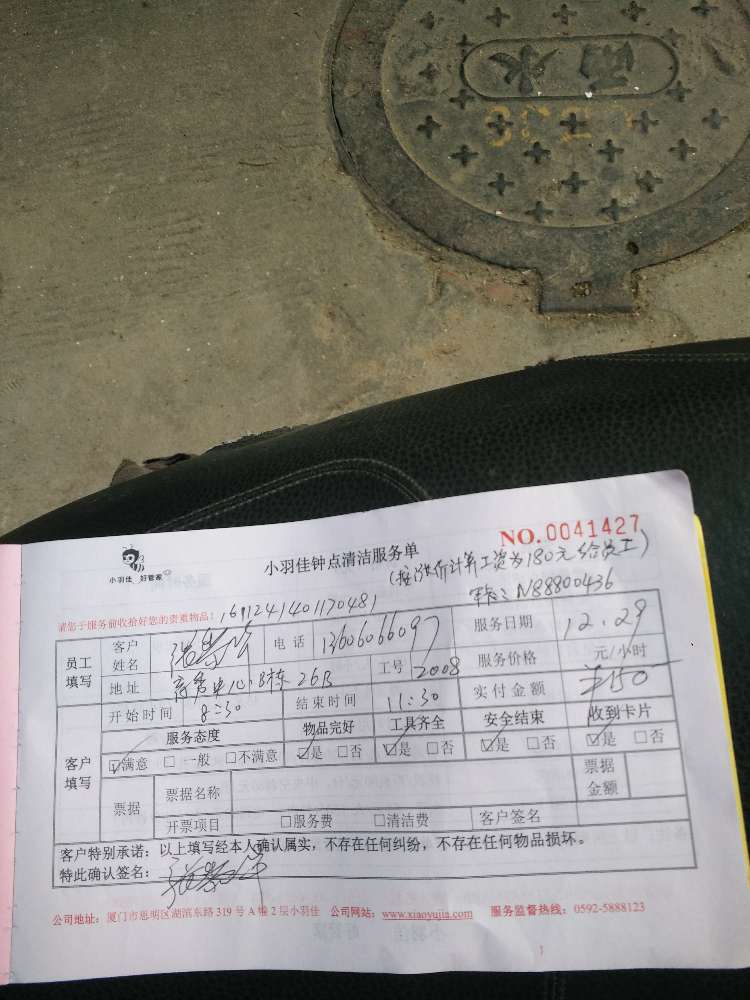 雨水
NO.0041427
小羽佳 好管家
小羽佳钟点清洁服务单
(按涨价计算工资为180元给员工)
N88800436
请您于服务前收拾好您的贵重物品:
1691241401170481
员工填写 客户姓名 电话 13606066097 服务日期 12.29
地址 B栋26B 工号 2008 服务价格 元/小时
客户填写 开始时间 8:30 结束时间 11:30 实付金额 ¥150
服务态度 物品完好 工具齐全 安全结束 收到卡片
☑满意 □一般 □不满意 ☑是 □否 ☑是 □否 ☑是 □否 ☑是 □否
票据 票据名称 票据金额
开票项目 □服务费 □清洁费 客户签名
客户特别承诺:以上填写经本人确认属实,不存在任何纠纷,不存在任何物品损坏。
特此确认签名:
公司地址:厦门市思明区湖滨东路319号A幢2层小羽佳 公司网站:www.xiaoyujia.com 服务监督热线:0592-5888123